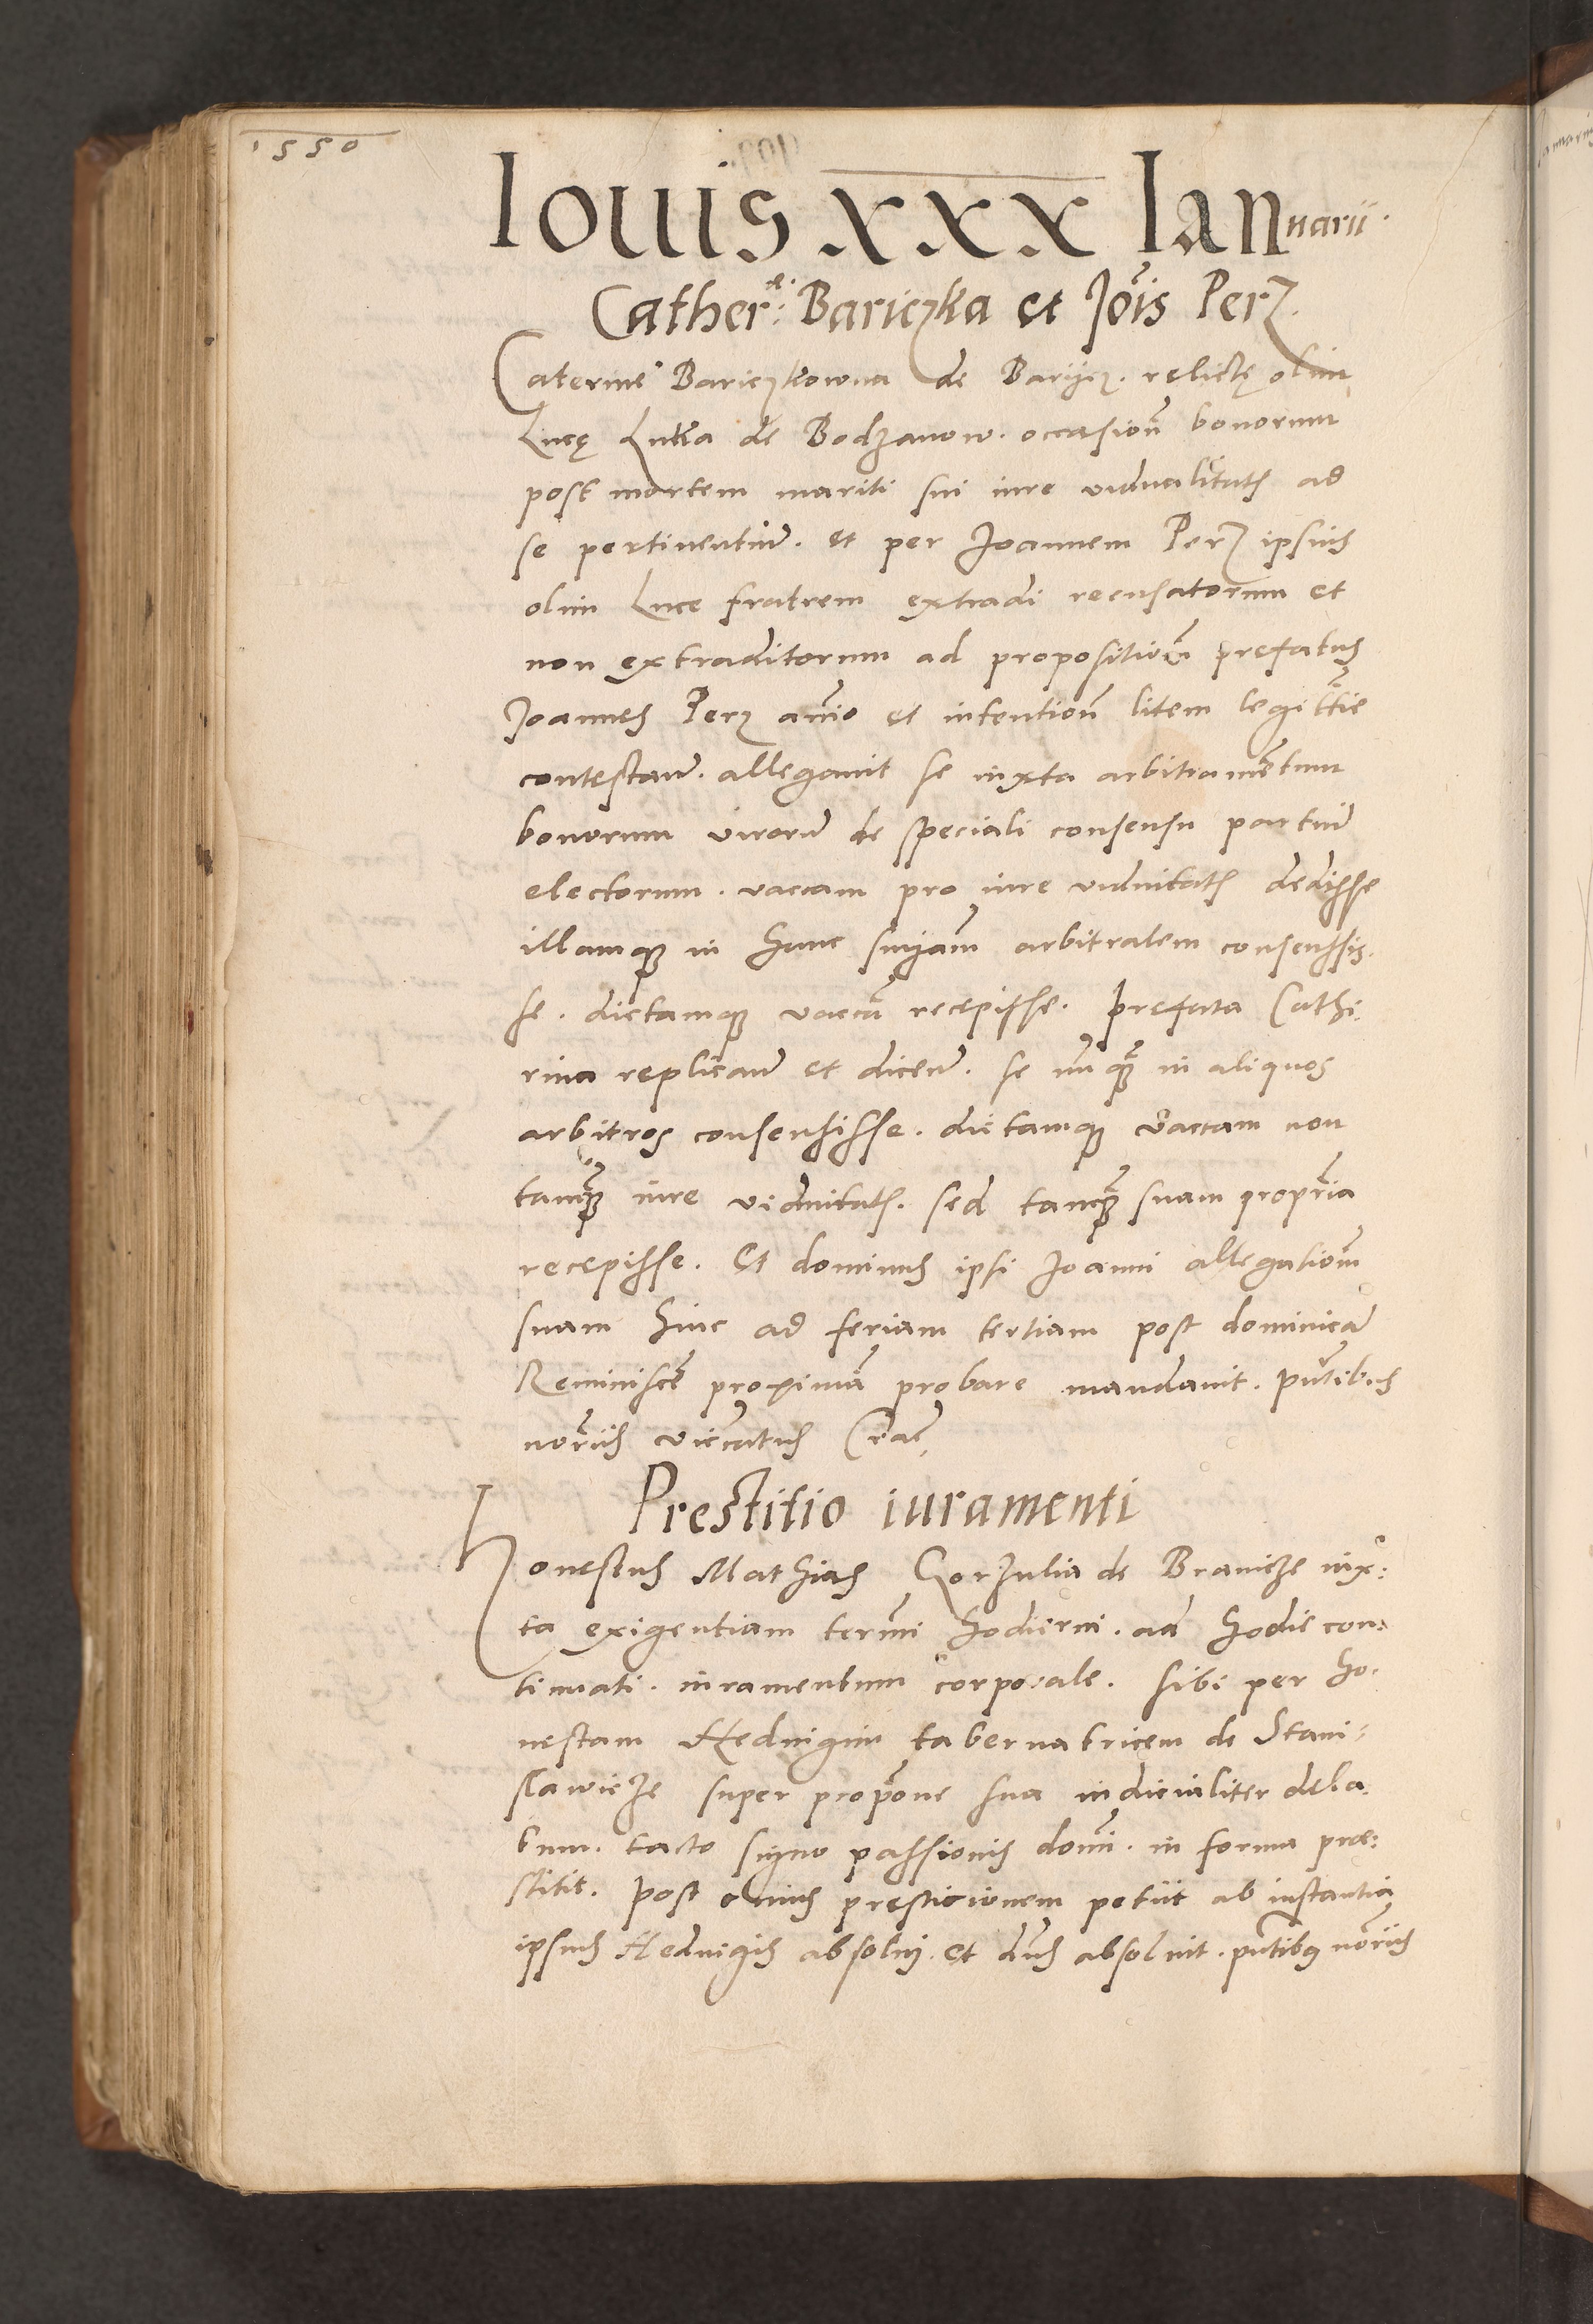 1550
Iouis xxx Ianuarii.
Cather: Bariczka et Jois Perz.
Caterine Bariczkowna de Barycz. relictę olim
Lucę Lutka de Bodzanow. occasion bonorum
post mortem mariti sui iure vidualitatis ad
se pertinentium. et per Joannem Perz ipsius
olim Luce fratrem extradi recusatorum et
non extraditorum ad proposition prefatus
Joannes Perz animo et intention litem legittie
contestan. allegauit se iuxta arbitramentum
bonorum viroru de speciali consensu partium
electorum. vaccam pro iure viduitatis dedisse
illamque in hanc sniam arbitralem consensis
se. dictamque vacca recepisse. prefata Cathe:
rina replican et dicen. se nunquam in aliquos
arbitros consensisse. dictamque vaccam non
tanquam iure viduitatis. sed tanquam suam propria
recepisse. Et dominus ipsi Joanni allegationem
suam hinc ad feriam tertiam post dominica
Reminiscere proxima probare mandauit. pntibus
noriis vicecatus Crac.
Prestitio iuramenti
Honestus Mathias Gorzulia de Branicze iux:
ta exigentiam termini hodierni. ad hodie con:
tinuati. iuramentum corporale. sibi per ho:
nestam Heduigim tabernatricem de Stani:
slawicze super propone sua iudicialiter dela:
tum. tacto signo passionis domini. in forma præ:
stitit. Post cuius prestitionem petiit ab instantia
ipsius Heduigis absolui. et dns absoluit. pntibus noriis